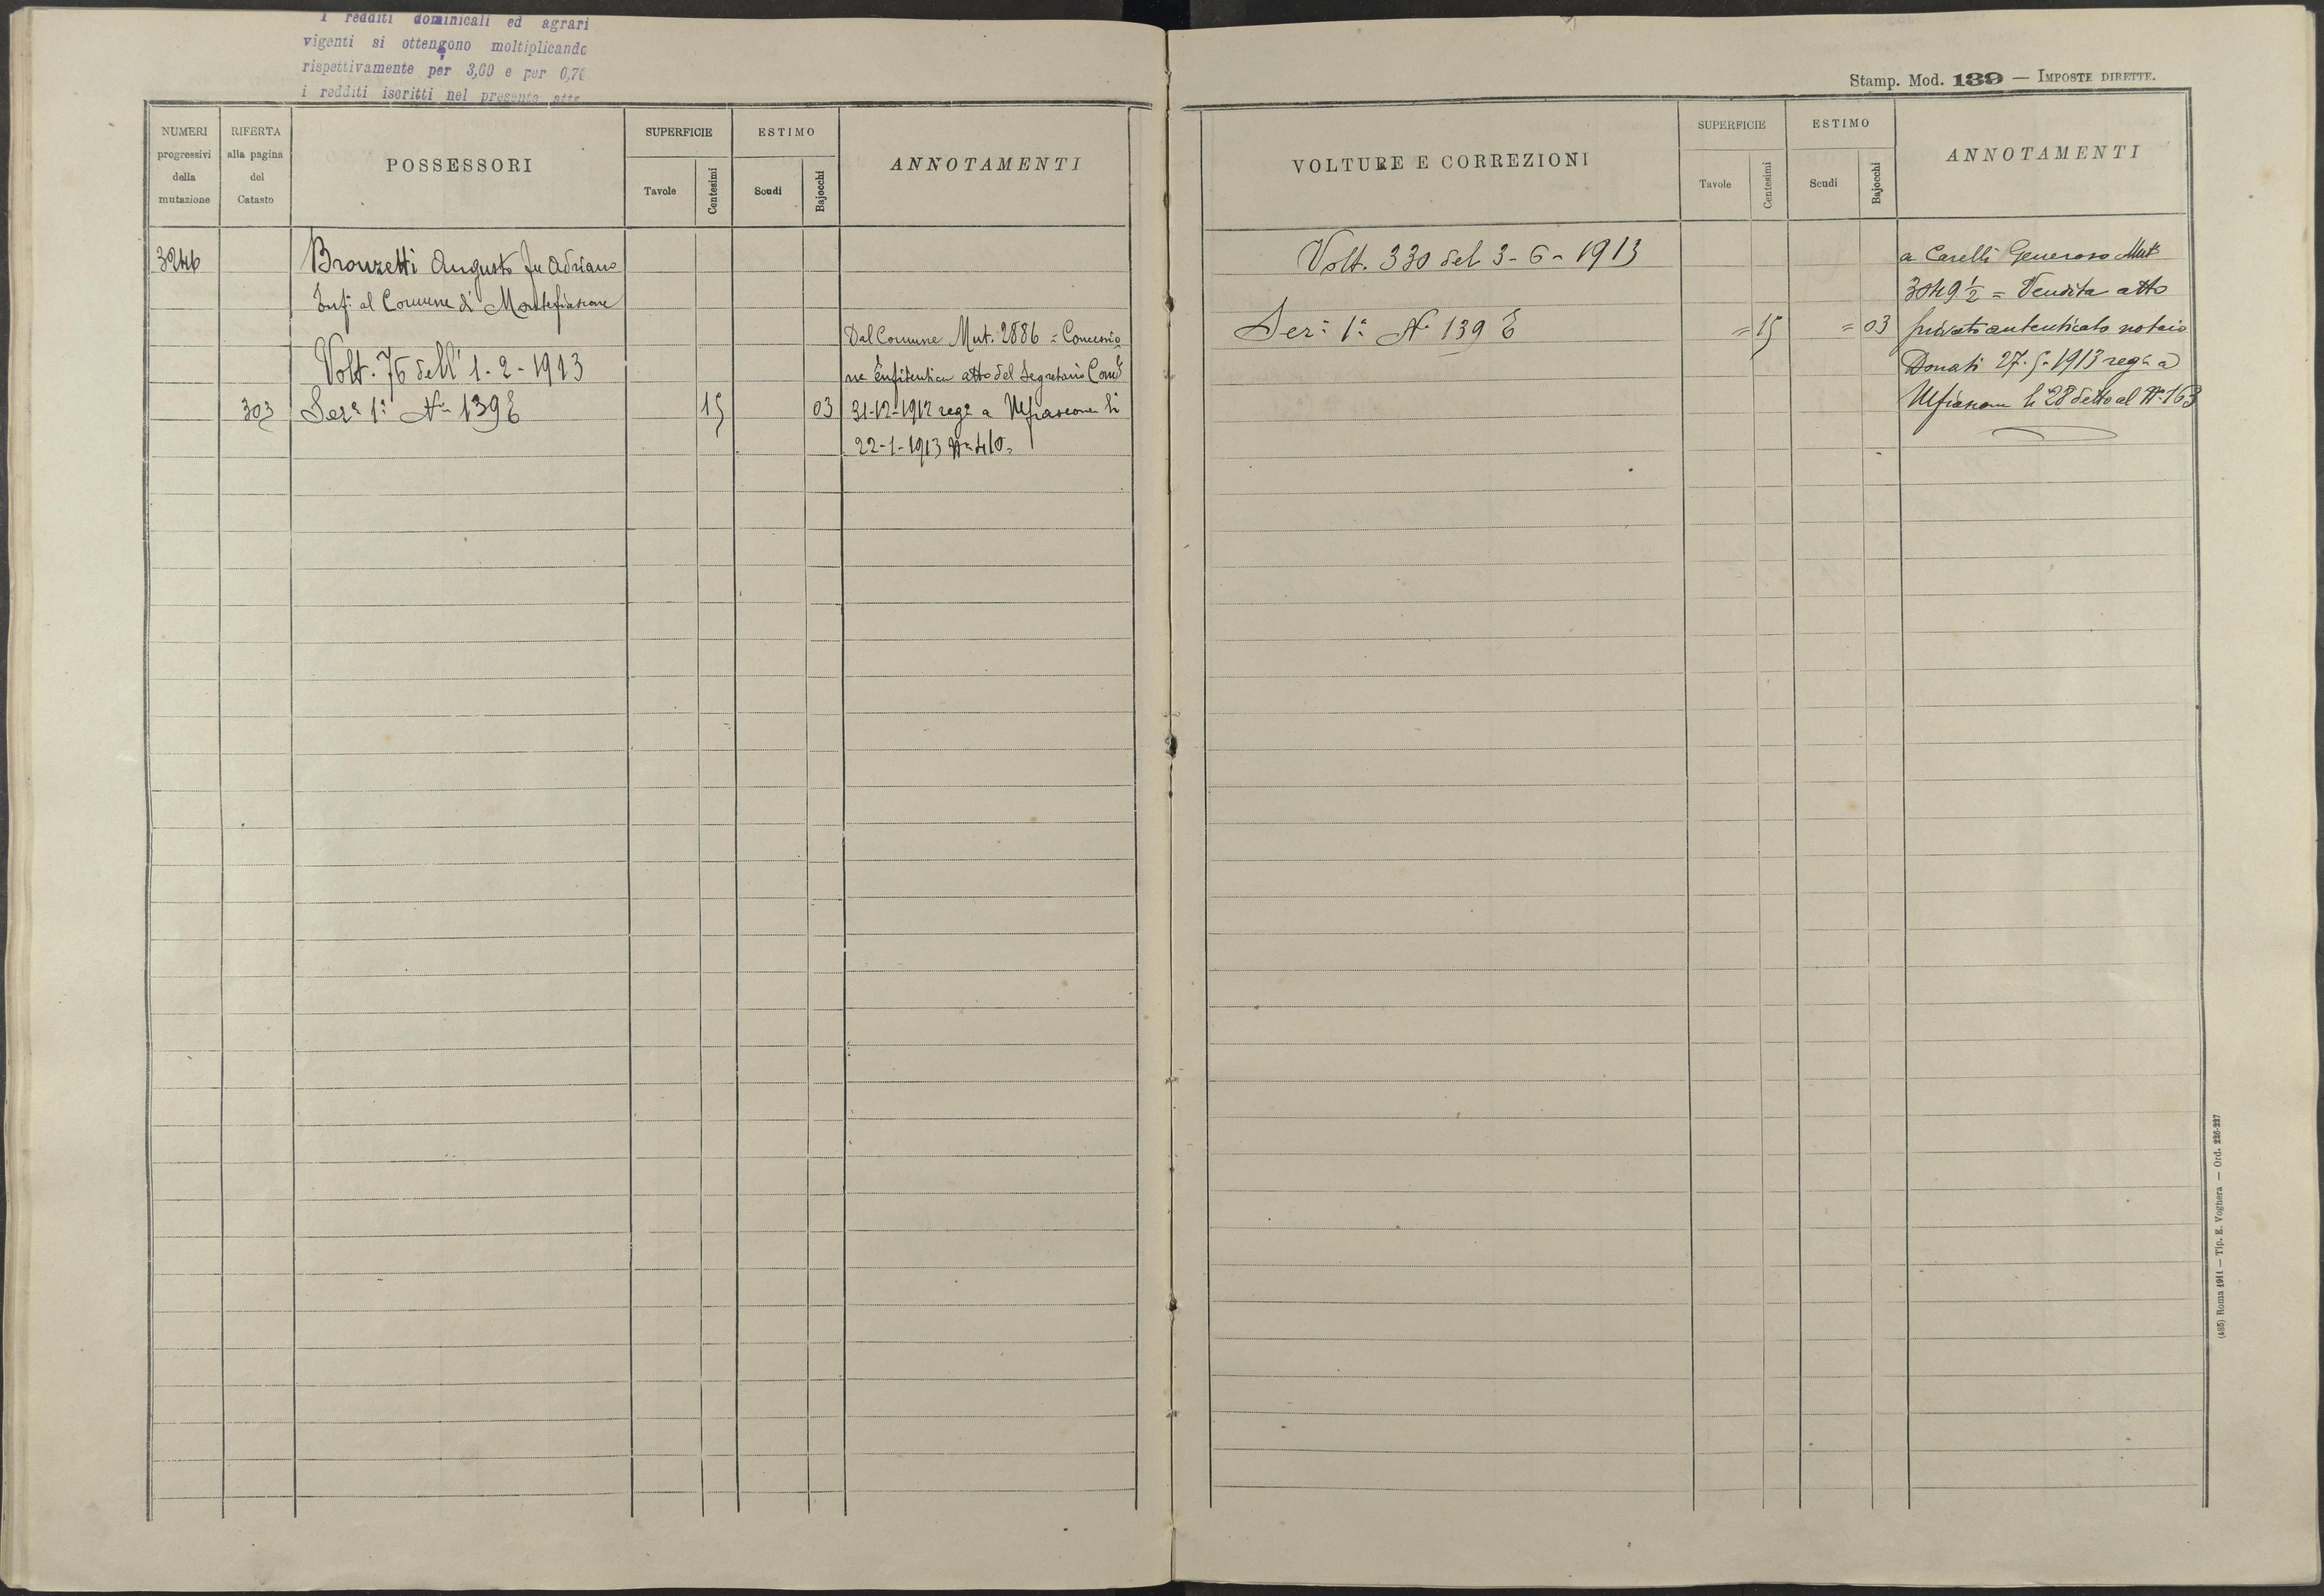 I redditi dominicali ed agrari
vigenti si ottengono moltiplicando
rispettivamente per 3,60 e per 0,70
i redditi iscritti nel presente atto
NUMERI progressivi della mutazione
RIFERTA alla pagina del Catasto
POSSESSORI
SUPERFICIE
Tavole
Centesimi
ESTIMO
Scudi
Bajocchi
ANNOTAMENTI
3246
Bronzetti Augusto fu Adriano
Enf. al Comune di Montefiascone
Volt. 76 dell' 1-2-1913
303 Ser. 1ª Nº 139 E 15 03
Dal Comune Mut. 2886 = Concessio
ne Enfiteutica atto del Segretario Com
31-12-1912 reg. a Mfiascone li
22-1-1913 Nº 410
Stamp. Mod. 139 — IMPOSTE DIRETTE.
VOLTURE E CORREZIONI
SUPERFICIE
Tavole
Centesimi
ESTIMO
Scudi
Bajocchi
ANNOTAMENTI
Volt. 330 del 3-6-1913
Ser. 1ª Nº 139 E = 15 = 03
a Carelli Generoso Mut
3049 ½ = Vendita atto
privato autenticato notaio
Donati 27-5-1913 reg. a
Mfiascone li 28 detto al Nº 163
(485) Roma 1911 — Tip. E. Voghera — Ord. 226-227